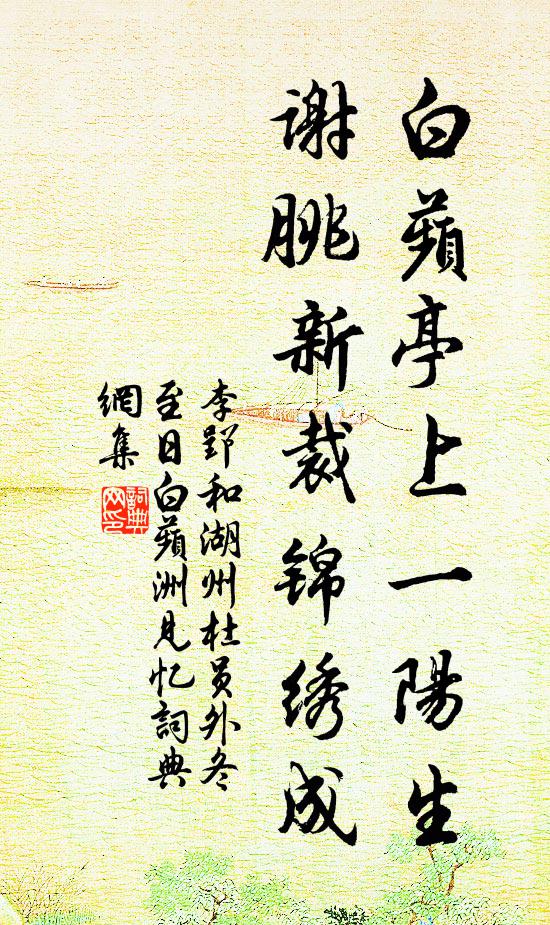 白蘋亭上一陽生
谢脁新裁锦绣成
李郢和湖州杜员外冬
至日白蘋洲見忆詞典
網集
詞典
网印